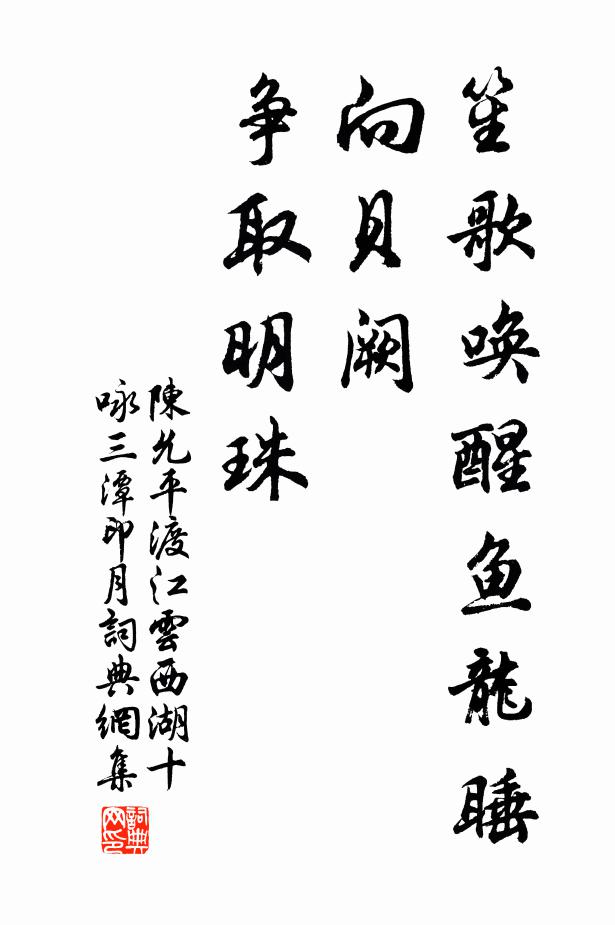 笙歌唤醒鱼龍睡
向貝阙
争取明珠
陳允平渡江雲西湖十
咏三潭印月詞典網集
詞典网印